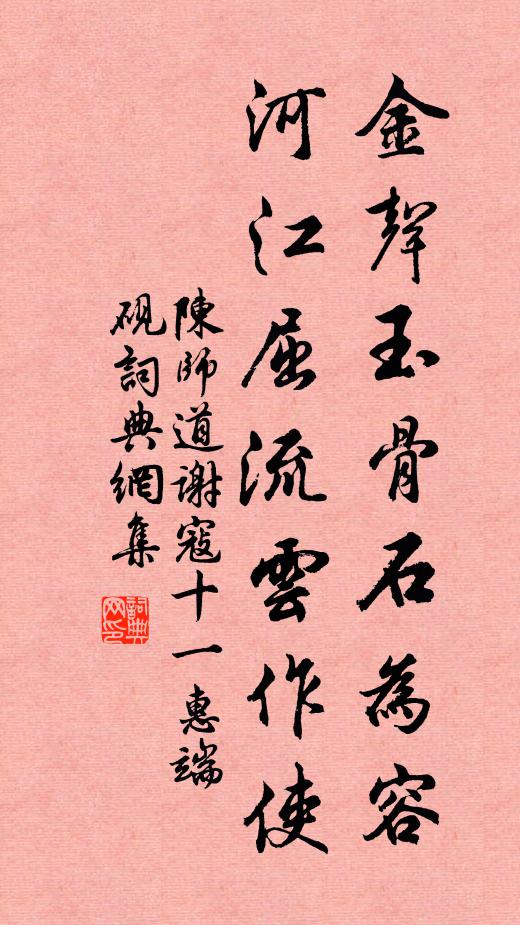 金聲玉骨石為容
河江屈流雲作使
陳師道謝寇十一 惠端
硯詞典網集
詞典网印